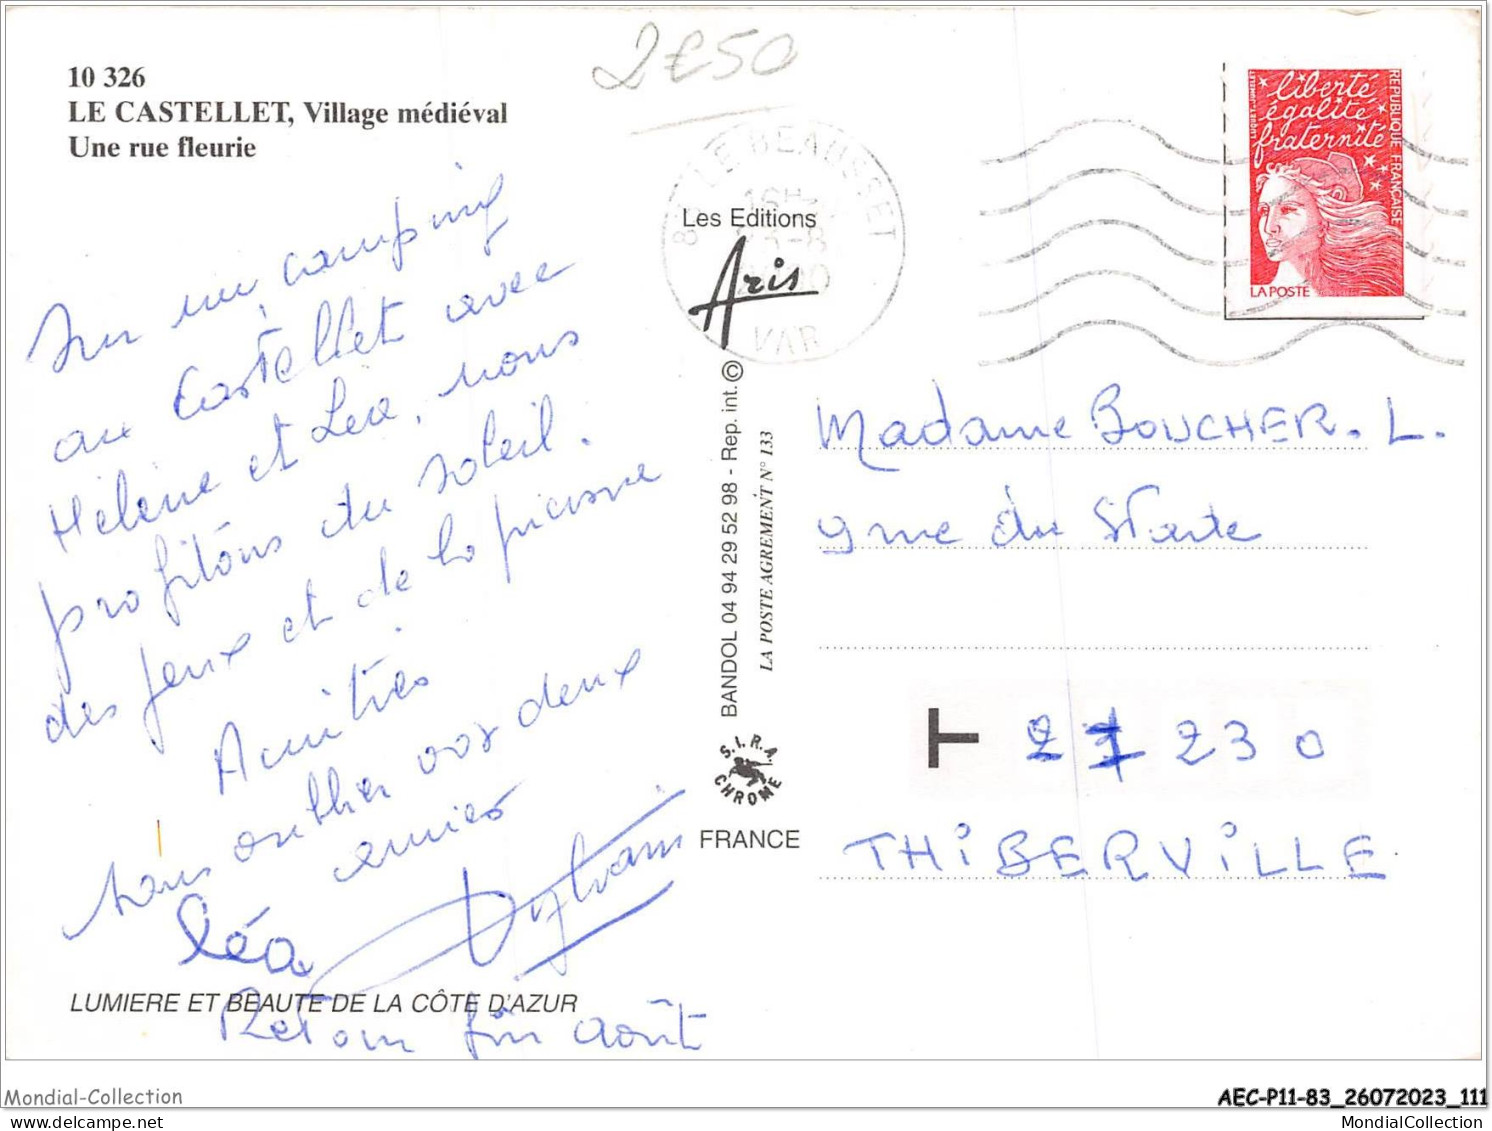 10 326
LE CASTELLET, Village médiéval
Une rue fleurie
2€50
Sur un camping
au Castellet avec
Hélène et Léa, nous
profitons du soleil.
des jeux et de la piscine
Amitiés
sans oublier vos deux
amies
léa Sylvain
LUMIERE ET BEAUTE DE LA CÔTE D'AZUR
Retour fin août
Les Editions
Aris
BANDOL 04 94 29 52 98 - Rep. int. ©
LA POSTE AGREMENT N° 133
S.I.R.A.
CHROME
FRANCE
LE BEAUSSET
16H
VAR
liberté
égalité
fraternité
RÉPUBLIQUE FRANÇAISE
LA POSTE
Madame BOUCHER. L.
9 rue du Stade
T 27 230
THIBERVILLE
Mondial-Collection
AEC-P11-83_26072023_111
MondialCollection